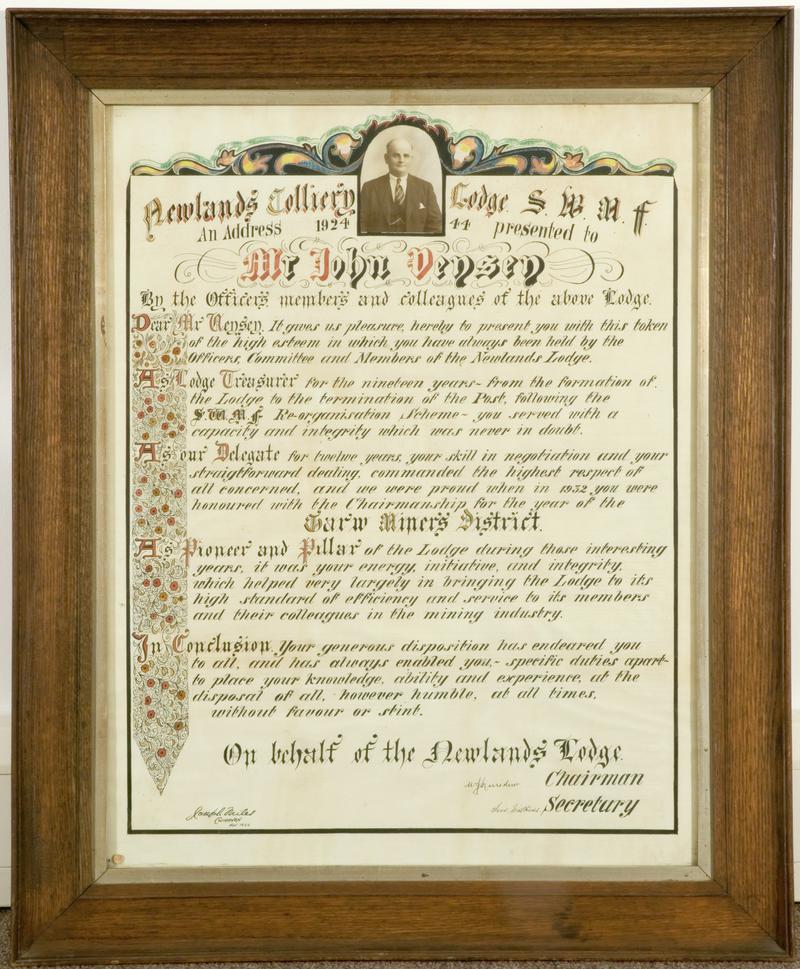 Newlands Colliery Lodge. S. W. M. F.
An Address 1924 44 presented to
Mr John Veysey
By the Officers members and colleagues of the above Lodge.
Dear Mr Veysey, It gives us pleasure, hereby to present you with this token
of the high esteem in which you have always been held by the
Officers, Committee and Members of the Newlands Lodge.
As Lodge Treasurer for the nineteen years- from the formation of
the Lodge to the termination of the Post, following the
S.W.M.F. Re-organisation Scheme- you served with a
capacity and integrity which was never in doubt.
As our Delegate for twelve years, your skill in negotiation and your
straigtforward dealing, commanded the highest respect of
all concerned, and we were proud when in 1932 you were
honoured with the Chairmanship for the year of the
Garw Miners District.
As Pioneer and Pillar of the Lodge during those interesting
years, it was your energy, initiative, and integrity,
which helped very largely in bringing the Lodge to its
high standard of efficiency and service to its members
and their colleagues in the mining industry.
In Conclusion, Your generous disposition has endeared you
to all, and has always enabled you,- specific duties apart-
to place your knowledge, ability and experience, at the
disposal of all, however humble, at all times,
without favour or stint.
On behalf of the Newlands Lodge.
Chairman
Secretary
Joseph